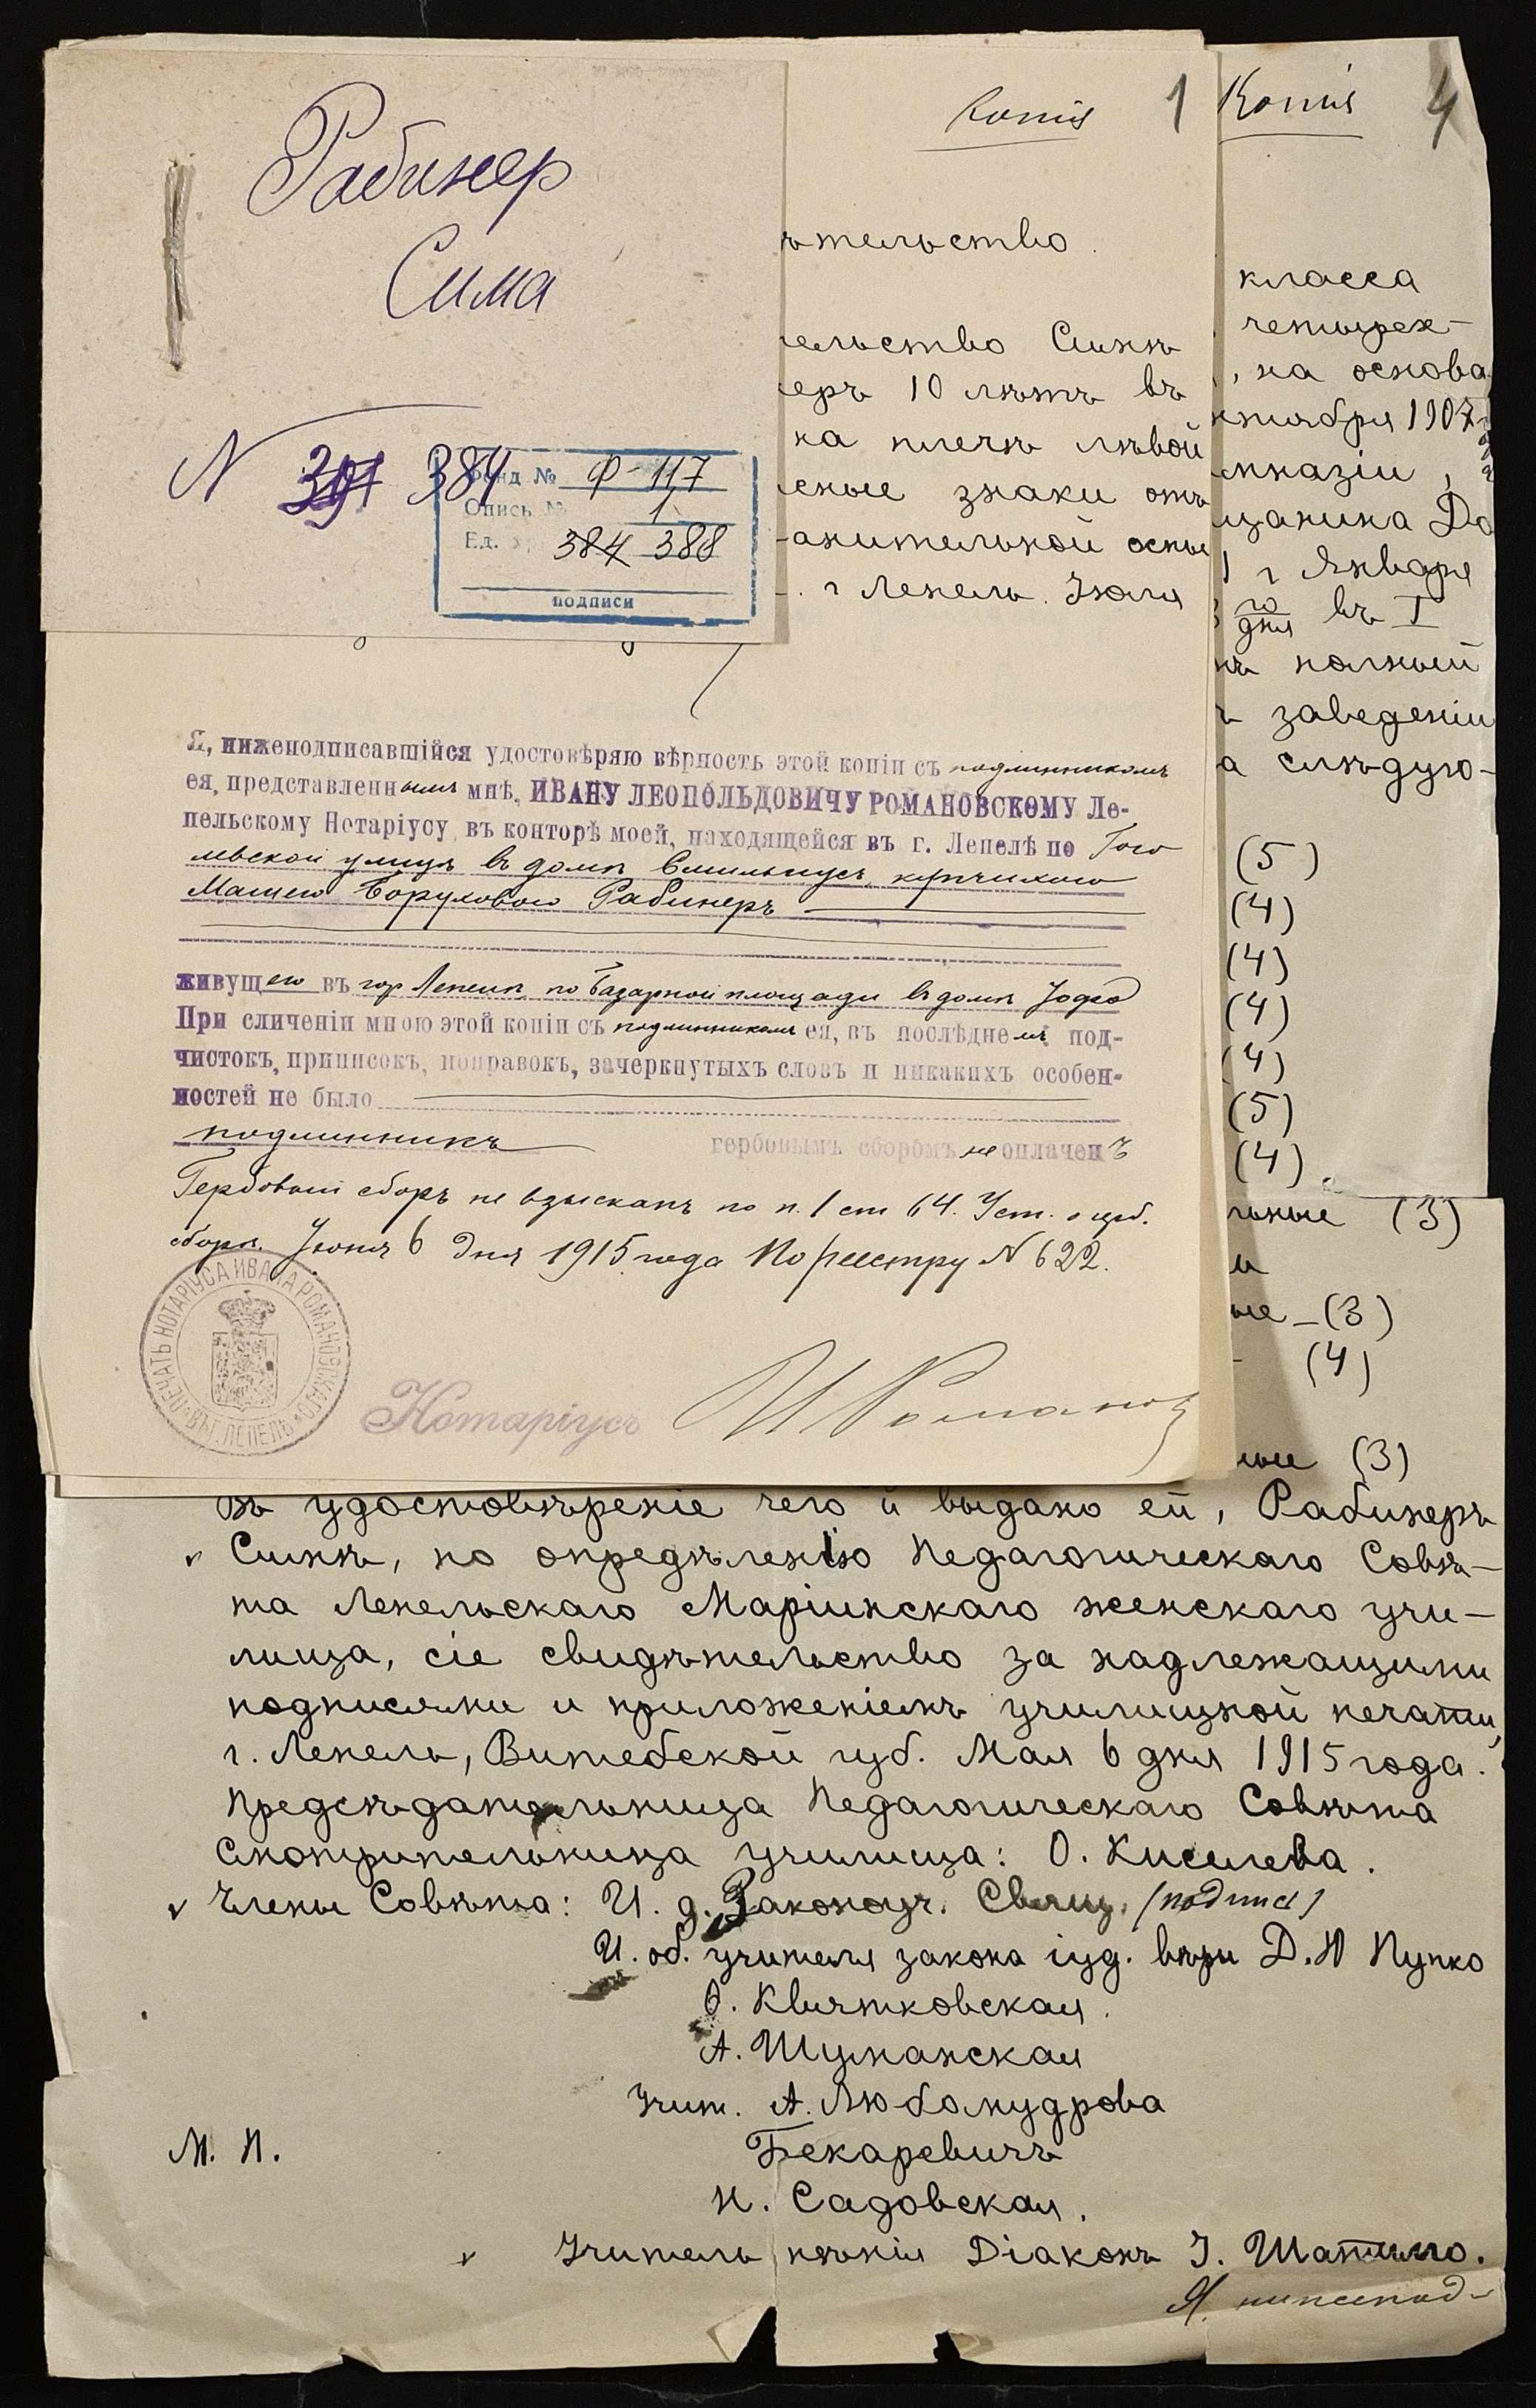 Рабинер
Сима
N 391 384
Фонд № Ф-117
Опись № 1
Ед. 384 388
подписи
Копия 1
ѣтельство.
ельство Симѣ
еръ 10 лѣтъ въ
на плечѣ лѣвой
сные знаки отъ
анительной оспы
г Лепель. Іюля
Я, нижеподписавшійся удостовѣряю вѣрность этой копіи съ подлинникомъ
ея, представленнымъ мнѣ, ИВАНУ ЛЕОПОЛЬДОВИЧУ РОМАНОВСКОМУ Ле-
пельскому Нотаріусу въ конторѣ моей, находящейся въ г. Лепелѣ по Гого
левской улицѣ въ домѣ купчихою
Рабинеръ
живущею въ гор Лепелѣ, по Базарной площади въ домѣ
При сличеніи мною этой копіи съ подлинникомъ ея, въ послѣднемъ под-
чистокъ, приписокъ, поправокъ, зачеркнутыхъ словъ и никакихъ особен-
ностей не было
подлинникъ гербовымъ сборомъ не оплаченъ
Гербовый сборъ не взысканъ по п. 1 ст 64. Уст. о герб.
сборѣ. Іюня 6 дня 1915 года По реестру N 622.
ПЕЧАТЬ НОТАРІУСА ИВАНА РОМАНОВСКАГО ВЪ Г. ЛЕПЕЛѢ
Нотаріусъ И Романов
Копия 4
класса
четырех-
, на основа
ктября 1907
мназіи,
щанина До
1 г Января
го дня въ I
нъ полный
ъ заведеніи
а слѣдую-
(5)
(4)
(4)
(4)
(4)
(5)
(4).
льные (3)
и
ые - (3)
- (4)
ные (3)
Въ удостовѣреніе чего и выдано ей, Рабинеръ
Симѣ, по опредѣленію Педагогическаго Совѣ-
та Лепельскаго Маріинскаго женскаго учи-
лища, сіе свидѣтельство за надлежащими
подписями и приложеніемъ училищной печати,
г. Лепель, Витебской губ. Мая 6 дня 1915 года.
Предсѣдательница Педагогическаго Совѣта
Смотрительница училища: О. Киселева.
Члены Совѣта: И. д. Законоуч. Свящ. (подпись)
И. об. учителя закона іуд. вѣры Д. И Пупко
О. Квятковская.
А. Шуманская
Учит. А. Любомудрова
Бекаревичъ
Н. Садовская.
М. П.
Учитель пѣнія Діаконъ І. Шатилло.
Я, нижепод-